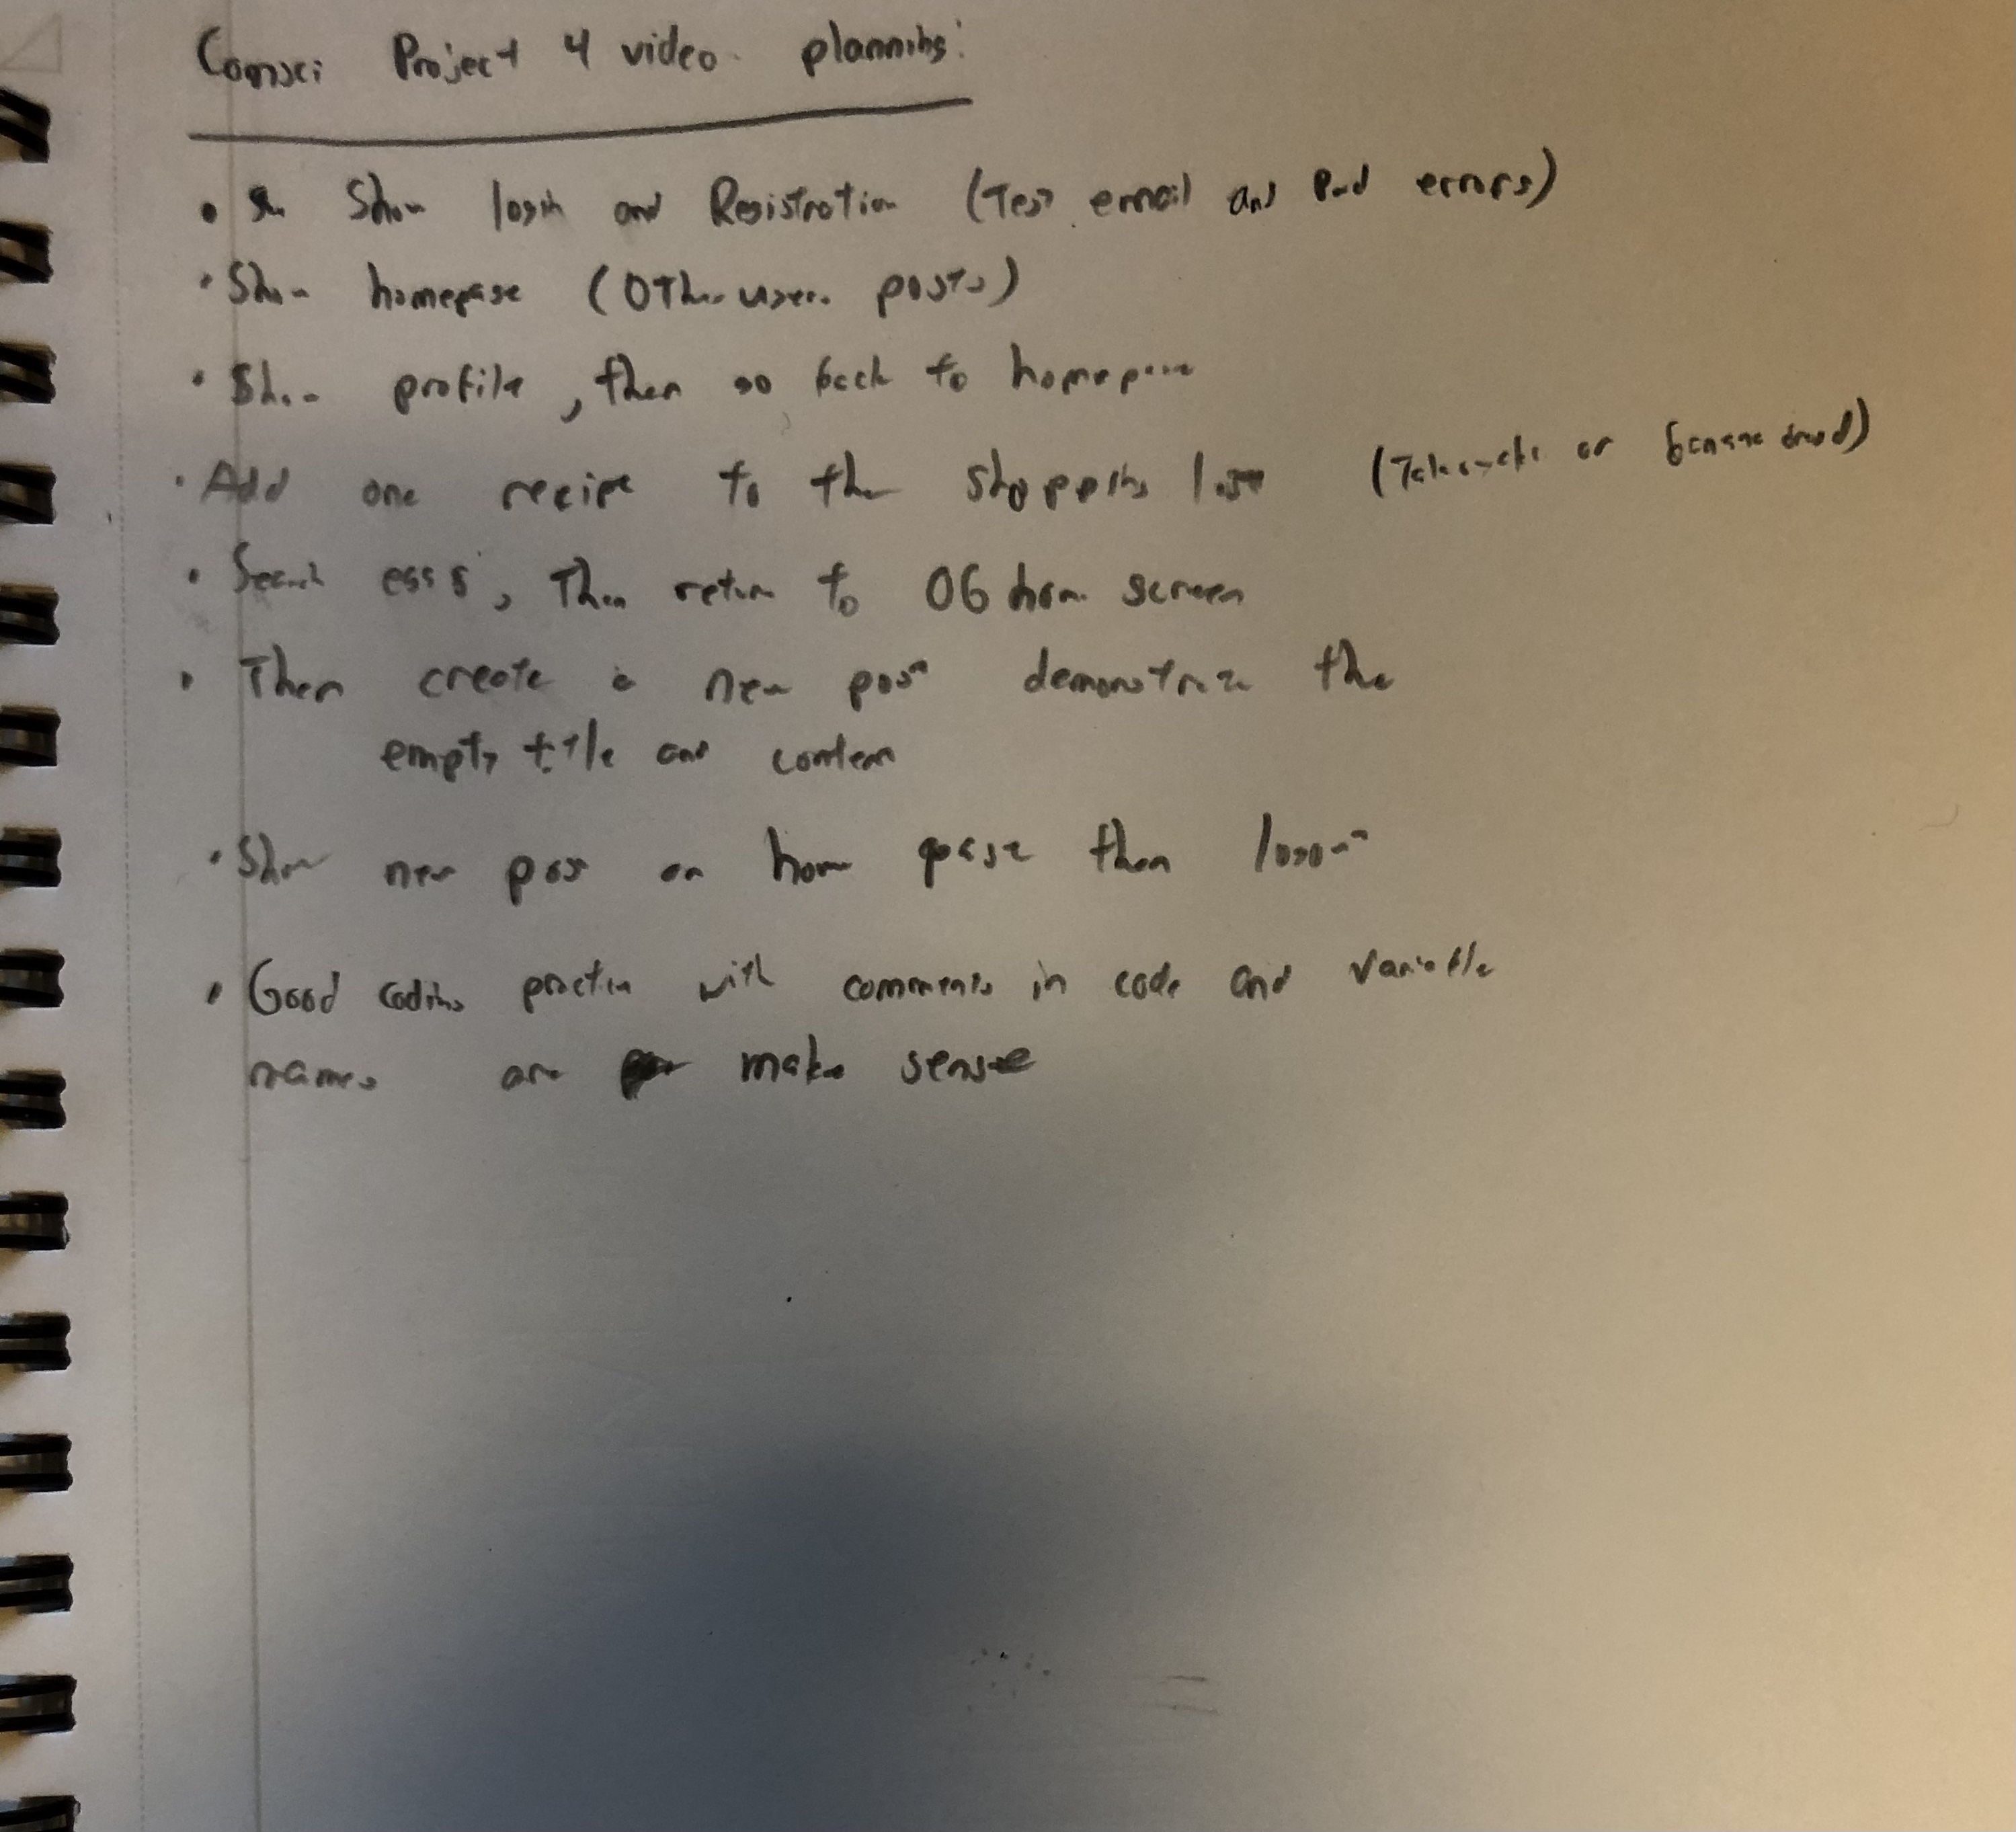 Comsci Project 4 video planning:
• Show login and Registration (Test email and Pwd errors)
• Show homepage (Other users posts)
• Show profile, then go back to homepage
• Add one recipe to the shopping list ( or banana bread)
• Search eggs, Then return to OG home screen
• Then create a new post demonstrate the
empty title and content
• Show new post on home page then logout
• Good coding practice with comments in code and variable
names are make sense